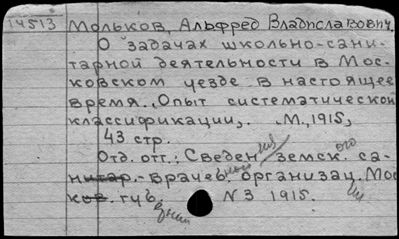 14513 Мольков, Альфред Владиславович.
О задачах школьно-сани-
тарной деятельности в Мос-
ковском уезде в настоящее
время. Опыт систематической
классификации,. М., 1915,
43 стр.
Отд. отт.: Сведения земск. ого са-
нитар.-врачебной организац. Мос
ков. губ. N 3 1915.